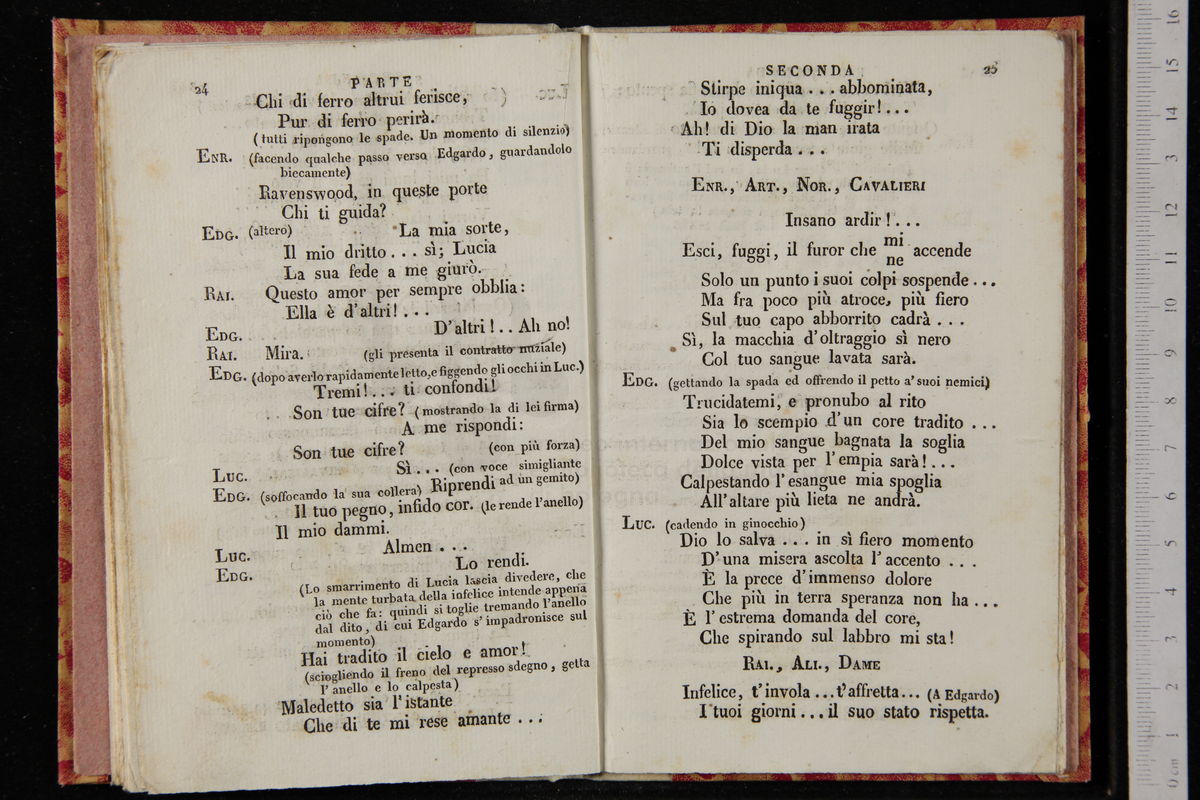 24
PARTE
Chi di ferro altrui ferisce,
Pur di ferro perirà.
(tutti ripongono le spade. Un momento di silenzio)
ENR. (facendo qualche passo verso Edgardo, guardandolo
biecamente)
Ravenswood, in queste porte
Chi ti guida?
EDG. (altero) La mia sorte,
Il mio dritto... sì; Lucia
La sua fede a me giurò.
RAI. Questo amor per sempre obblia:
Ella è d'altri!...
EDG. D'altri!.. Ah no!
RAI. Mira. (gli presenta il contratto nuziale)
EDG. (dopo averlo rapidamente letto, e figgendo gli occhi in Luc.)
Tremi!... ti confondi!
Son tue cifre? (mostrando la di lei firma)
A me rispondi:
Son tue cifre? (con più forza)
LUC. Sì... (con voce simigliante
ad un gemito)
EDG. (soffocando la sua collera) Riprendi
Il tuo pegno, infido cor. (le rende l'anello)
Il mio dammi.
LUC. Almen...
EDG. Lo rendi.
(Lo smarrimento di Lucia lascia divedere, che
la mente turbata della infelice intende appena
ciò che fa: quindi si toglie tremando l'anello
dal dito, di cui Edgardo s'impadronisce sul
momento)
Hai tradito il cielo e amor!
(sciogliendo il freno del represso sdegno, getta
l'anello e lo calpesta)
Maledetto sia l'istante
Che di te mi rese amante...
SECONDA
25
Stirpe iniqua... abbominata,
Io dovea da te fuggir!...
Ah! di Dio la man irata
Ti disperda...
ENR., ART., NOR., CAVALIERI
Insano ardir!...
Esci, fuggi, il furor che mi accende
ne
Solo un punto i suoi colpi sospende...
Ma fra poco più atroce, più fiero
Sul tuo capo abborrito cadrà...
Sì, la macchia d'oltraggio sì nero
Col tuo sangue lavata sarà.
EDG. (gettando la spada ed offrendo il petto a' suoi nemici)
Trucidatemi, e pronubo al rito
Sia lo scempio d'un core tradito...
Del mio sangue bagnata la soglia
Dolce vista per l'empia sarà!...
Calpestando l'esangue mia spoglia
All'altare più lieta ne andrà.
LUC. (cadendo in ginocchio)
Dio lo salva... in sì fiero momento
D'una misera ascolta l'accento...
È la prece d'immenso dolore
Che più in terra speranza non ha...
È l'estrema domanda del core,
Che spirando sul labbro mi sta!
RAI., ALI., DAME
Infelice, t'invola... t'affretta... (A Edgardo)
I tuoi giorni... il suo stato rispetta.